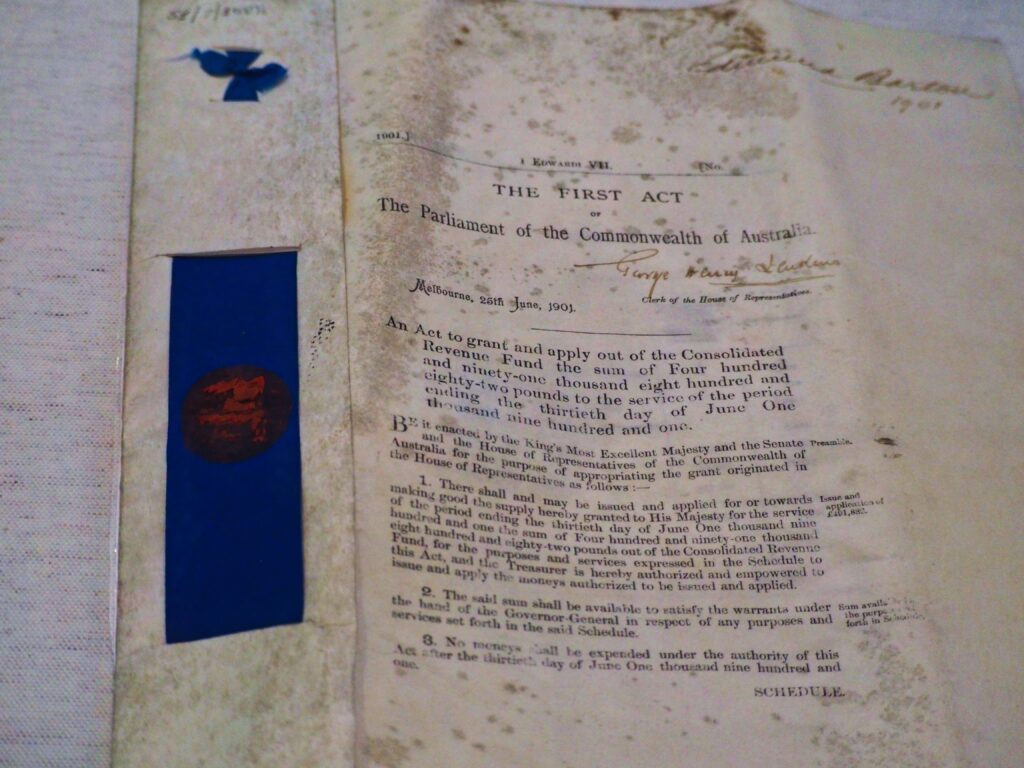 Edmund Barton
1901
1901.]
1 EDWARDI VII.
[No.
THE FIRST ACT
OF
The Parliament of the Commonwealth of Australia.
George Henry Jenkins
Clerk of the House of Representatives.
Melbourne, 25th June, 1901.
An Act to grant and apply out of the Consolidated
Revenue Fund the sum of Four hundred
and ninety-one thousand eight hundred and
eighty-two pounds to the service of the period
ending the thirtieth day of June One
thousand nine hundred and one.
BE it enacted by the King's Most Excellent Majesty and the Senate
and the House of Representatives of the Commonwealth of
Australia for the purpose of appropriating the grant originated in
the House of Representatives as follows :—
Preamble.
1. There shall and may be issued and applied for or towards
making good the supply hereby granted to His Majesty for the service
of the period ending the thirtieth day of June One thousand nine
hundred and one the sum of Four hundred and ninety-one thousand
eight hundred and eighty-two pounds out of the Consolidated Revenue
Fund, for the purposes and services expressed in the Schedule to
this Act, and the Treasurer is hereby authorized and empowered to
issue and apply the moneys authorized to be issued and applied.
Issue and
application of
£491,882.
2. The said sum shall be available to satisfy the warrants under
the hand of the Governor-General in respect of any purposes and
services set forth in the said Schedule.
Sum
the
forth in
3. No moneys shall be expended under the authority of this
Act after the thirtieth day of June One thousand nine hundred and
one.
SCHEDULE.